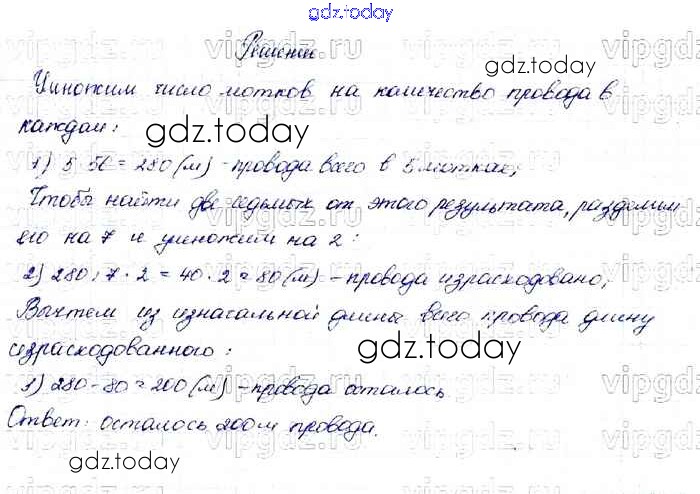 gdz.today
Решение
gdz.today
Умножим число мотков на количество провода в
каждом:
gdz.today
1) 5·56 = 280 (м) - провода всего в 5 мотках;
Чтобы найти две седьмых от этого результата, разделим
его на 7 и умножим на 2:
2) 280 : 7 · 2 = 40 · 2 = 80 (м) - провода израсходовано;
Вычтем из изначальной длины всего провода длину
израсходованного:
gdz.today
3) 280 - 80 = 200 (м) - провода осталось
Ответ: осталось 200 м провода.
gdz.today
gdz.today
vipgdz.ru